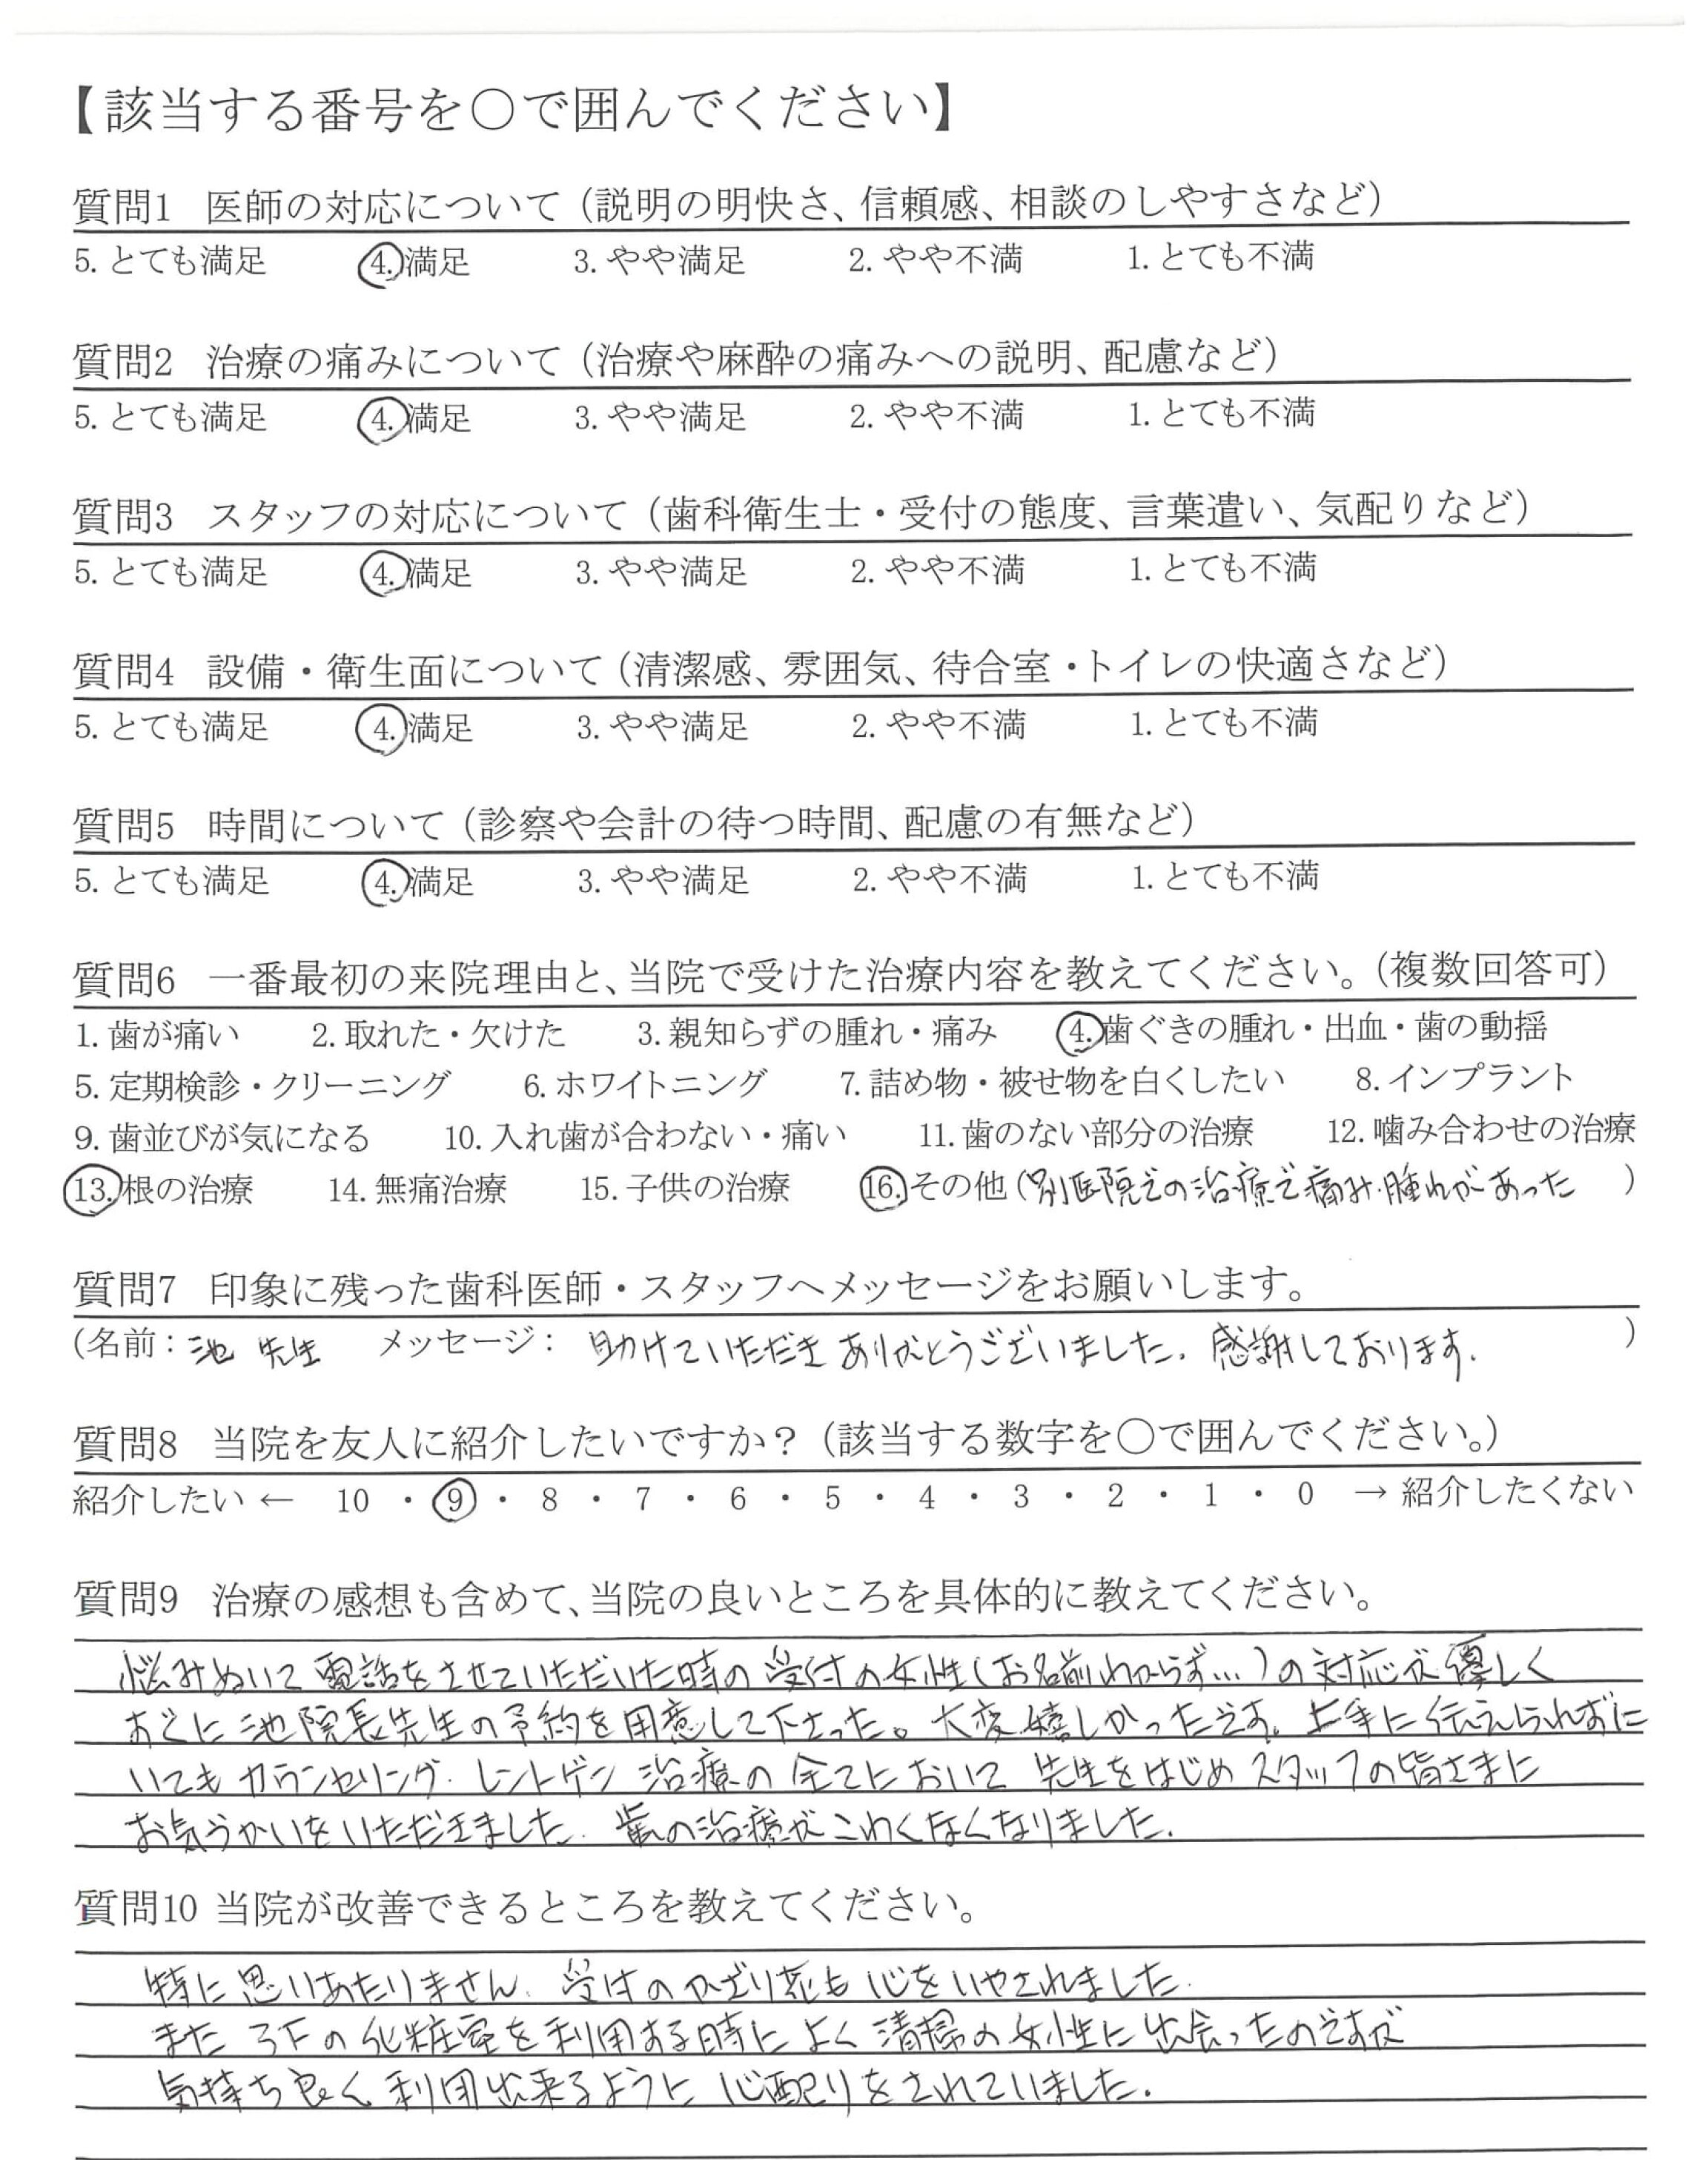 【該当する番号を○で囲んでください】
質問1 医師の対応について（説明の明快さ、信頼感、相談のしやすさなど）
5. とても満足 4. 満足 3. やや満足 2. やや不満 1. とても不満
質問2 治療の痛みについて（治療や麻酔の痛みへの説明、配慮など）
5. とても満足 4. 満足 3. やや満足 2. やや不満 1. とても不満
質問3 スタッフの対応について（歯科衛生士・受付の態度、言葉遣い、気配りなど）
5. とても満足 4. 満足 3. やや満足 2. やや不満 1. とても不満
質問4 設備・衛生面について（清潔感、雰囲気、待合室・トイレの快適さなど）
5. とても満足 4. 満足 3. やや満足 2. やや不満 1. とても不満
質問5 時間について（診察や会計の待つ時間、配慮の有無など）
5. とても満足 4. 満足 3. やや満足 2. やや不満 1. とても不満
質問6 一番最初の来院理由と、当院で受けた治療内容を教えてください。（複数回答可）
1. 歯が痛い 2. 取れた・欠けた 3. 親知らずの腫れ・痛み 4. 歯ぐきの腫れ・出血・歯の動揺
5. 定期検診・クリーニング 6. ホワイトニング 7. 詰め物・被せ物を白くしたい 8. インプラント
9. 歯並びが気になる 10. 入れ歯が合わない・痛い 11. 歯のない部分の治療 12. 噛み合わせの治療
13. 根の治療 14. 無痛治療 15. 子供の治療 16. その他（別医院での治療で痛み・腫れがあった ）
質問7 印象に残った歯科医師・スタッフへメッセージをお願いします。
（名前：池 先生 メッセージ： 助けていただきありがとうございました。感謝しております。 ）
質問8 当院を友人に紹介したいですか？（該当する数字を○で囲んでください。）
紹介したい ← 10 ・ 9 ・ 8 ・ 7 ・ 6 ・ 5 ・ 4 ・ 3 ・ 2 ・ 1 ・ 0 → 紹介したくない
質問9 治療の感想も含めて、当院の良いところを具体的に教えてください。
悩みぬいて電話をさせていただいた時の受付の女性（お名前わからず…）の対応が優しく
すぐに池院長先生の予約を用意して下さった。大変嬉しかったです。上手に伝えられずに
いてもカウンセリング・レントゲン 治療の全てにおいて先生をはじめスタッフの皆さまに
お気づかいをいただきました。歯の治療がこわくなくなりました。
質問10 当院が改善できるところを教えてください。
特に思いあたりません。受付のかざり花も心をいやされました。
また 3Fの化粧室を利用する時によく清掃の女性に出会ったのですが
気持ち良く利用出来るように心配りをされていました。